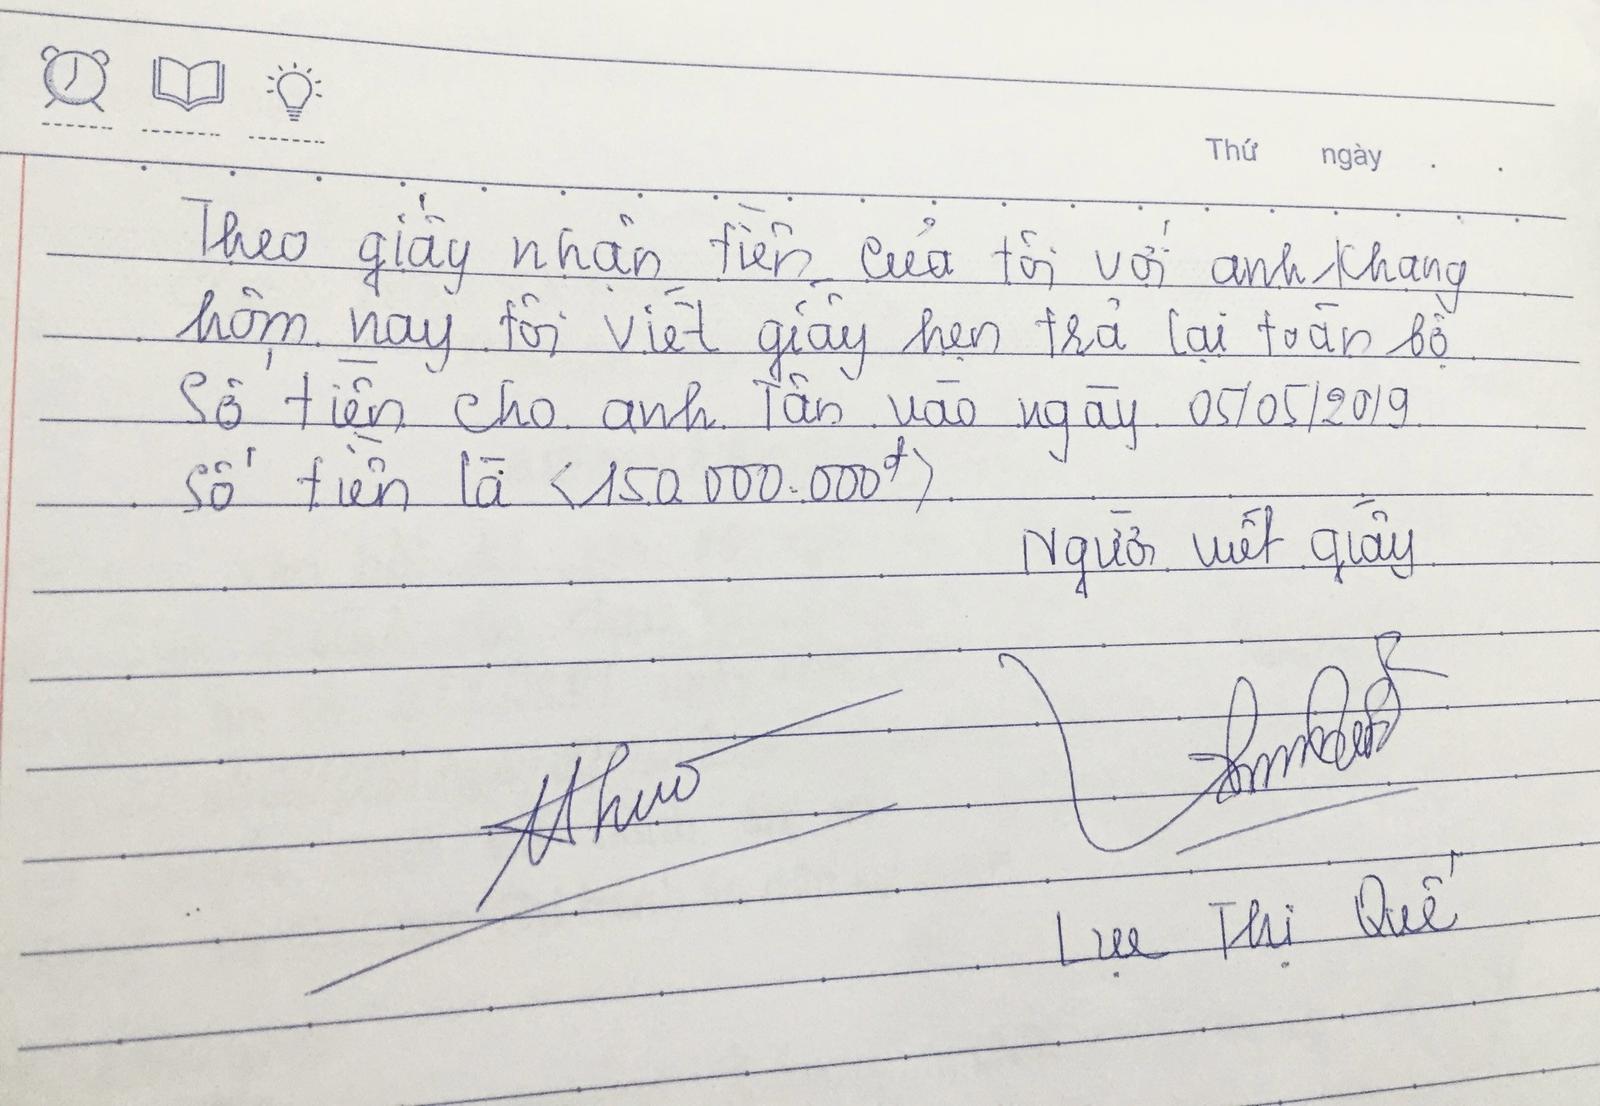 Thứ ngày . .
Theo giấy nhận tiền của tôi với anh Khang
hôm nay tôi viết giấy hẹn trả lại toàn bộ
Số tiền cho anh Tân vào ngày 05/05/2019
số tiền là <150.000.000đ>
Người viết giấy
Lục Thị Quế